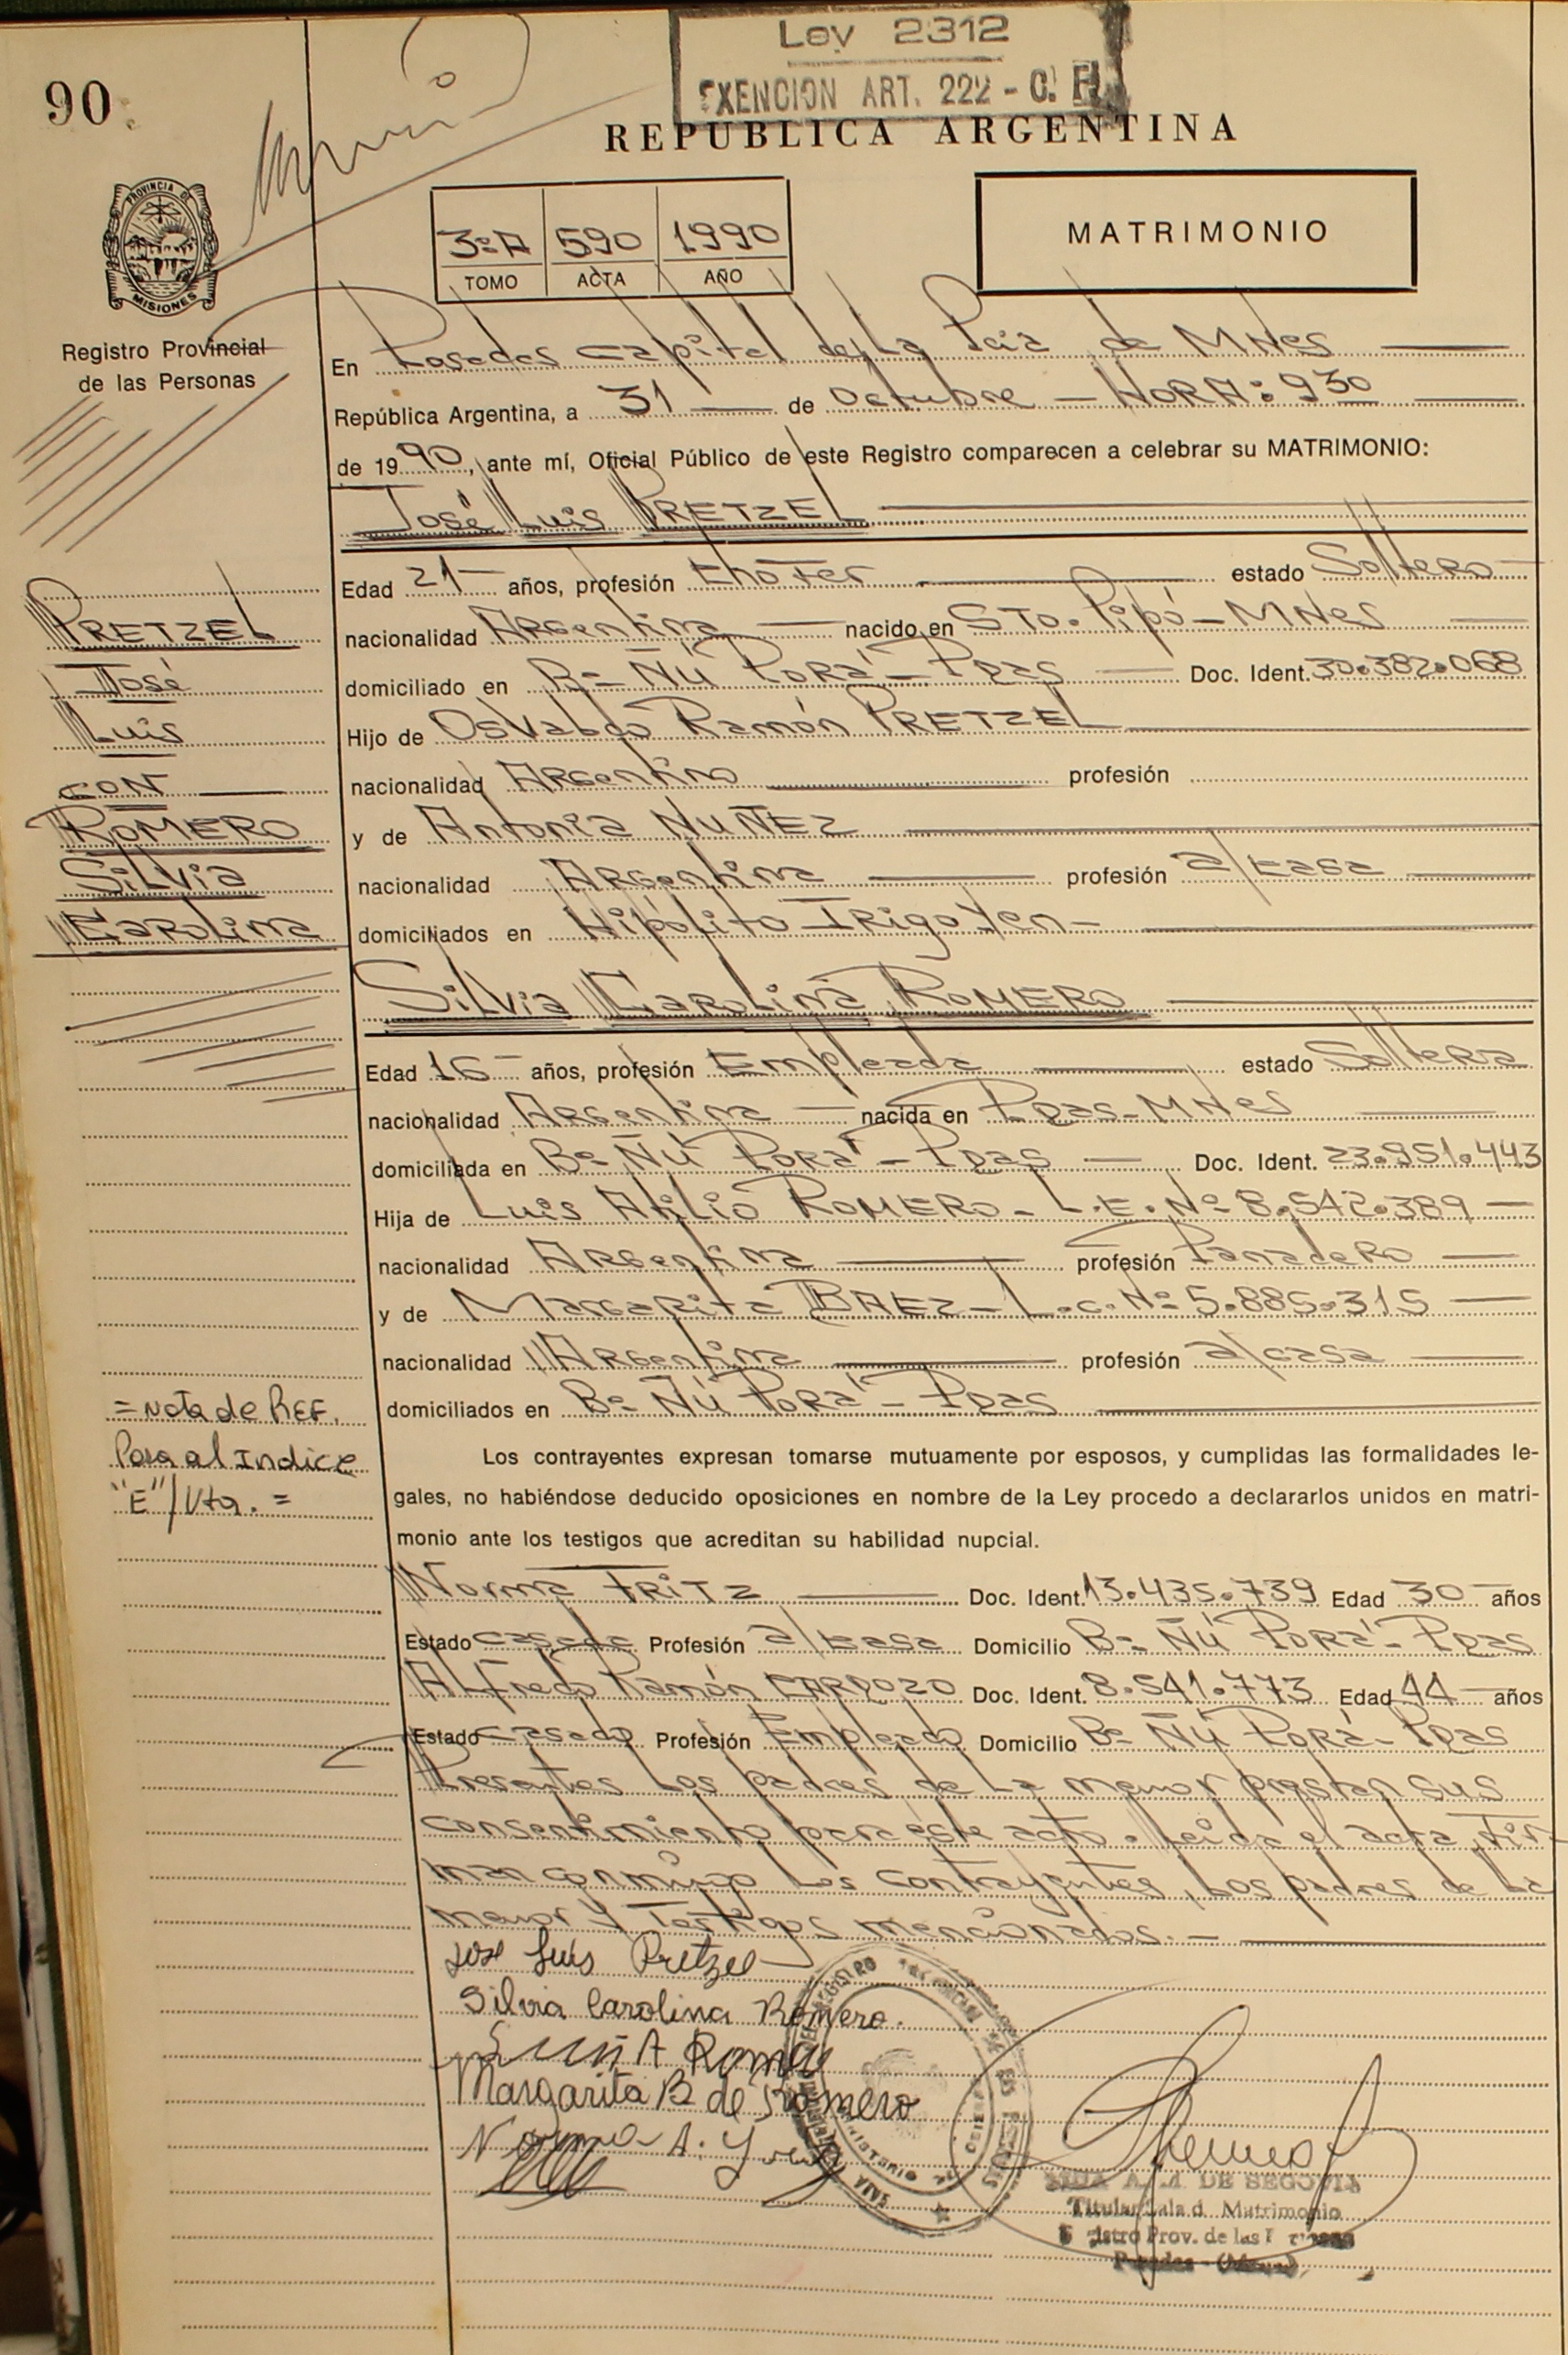 Ley 2312
EXENCION ART. 222 - C. F.
90
REPUBLICA ARGENTINA
PROVINCIA DE
MISIONES
3º A 590 1990
TOMO ACTA AÑO
MATRIMONIO
Registro Provincial
de las Personas
En Posadas Capital de la Pcia de MNes
República Argentina, a 31 de Octubre - HORA: 9 30
de 1990, ante mí, Oficial Público de este Registro comparecen a celebrar su MATRIMONIO:
José Luis PRETZEL
Edad 21 años, profesión Chofer estado Soltero
PRETZEL
José
Luis
CON
ROMERO
Silvia
Carolina
nacionalidad Argentina nacido en STO. Pipó - MNes
domiciliado en Bº Ñú Porá - Pdas Doc. Ident. 30.382.068
Hijo de Osvaldo Ramón PRETZEL
nacionalidad Argentino profesión
y de Antonia NUÑEZ
nacionalidad Argentina profesión a/casa
domiciliados en Hipólito Irigoyen -
Silvia Carolina ROMERO
Edad 16 años, profesión Empleada estado Soltera
nacionalidad Argentina nacida en Pdas - MNes
domiciliada en Bº Ñú Porá - Pdas Doc. Ident. 23.951.443
Hija de Luis Atilio ROMERO - L.E. Nº 8.542.389
nacionalidad Argentina profesión Panadero
y de Margarita BAEZ - L.C. Nº 5.885.315
nacionalidad Argentina profesión a/casa
domiciliados en Bº Ñú Porá - Pdas
= Nota de REF.
Pasa al Indice
"E" / Vta. =
Los contrayentes expresan tomarse mutuamente por esposos, y cumplidas las formalidades le-
gales, no habiéndose deducido oposiciones en nombre de la Ley procedo a declararlos unidos en matri-
monio ante los testigos que acreditan su habilidad nupcial.
Norma FRITZ Doc. Ident. 13.435.739 Edad 30 años
Estado casada Profesión a/casa Domicilio Bº Ñú Porá - Pdas
Alfredo Ramón CARDOZO Doc. Ident. 8.541.773 Edad 44 años
Estado casado Profesión Empleado Domicilio Bº Ñú Porá - Pdas
Presentes los padres de la menor prestan sus
consentimiento para éste acto. Leída el acta, fir-
man conmigo los contrayentes, los padres de la
menor y Testigos mencionados. -
Jose Luis Pretzel
Silvia Carolina Romero.
Luis A Romero
Margarita B de Romero
Norma A.
DE SEGOVIA
Titular Sala d Matrimonio
Prov. de las